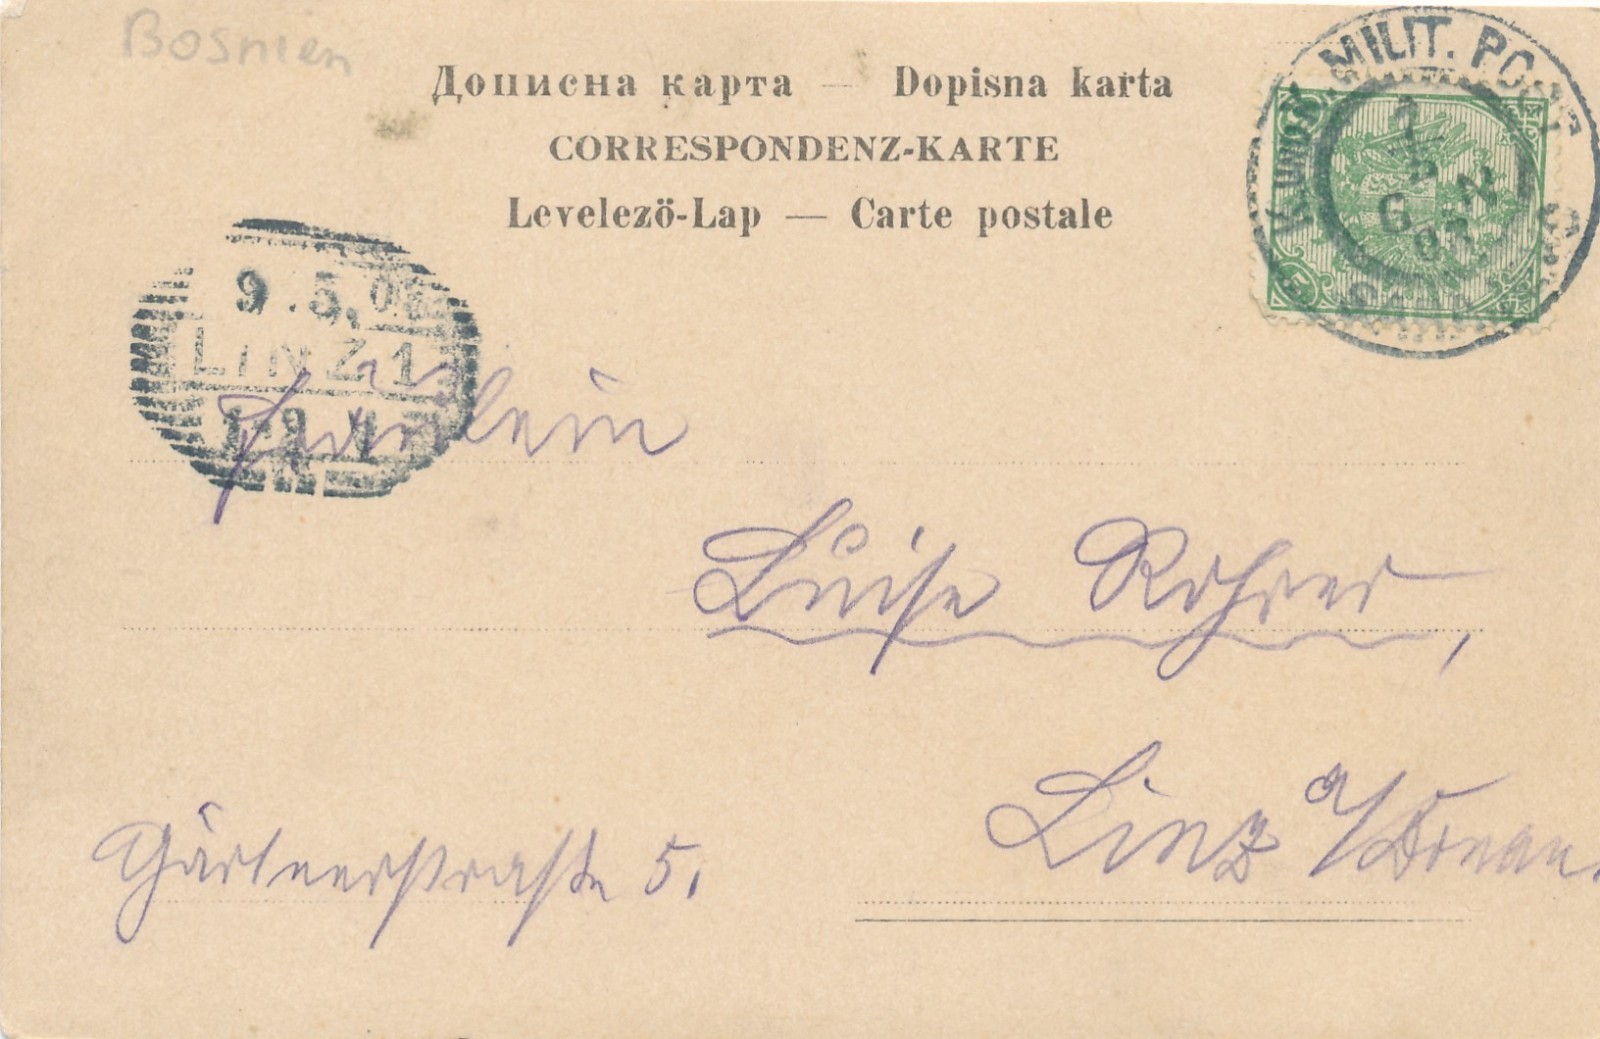 Bosnien
Дописна карта — Dopisna karta
CORRESPONDENZ-KARTE
Levelező-Lap — Carte postale
K. UND K. MILIT. POST
6
9.5.0
LINZ 1
Fräulein
Luise Rohrer,
Linz a/Donau.
Gärtnerstraße 5.
5